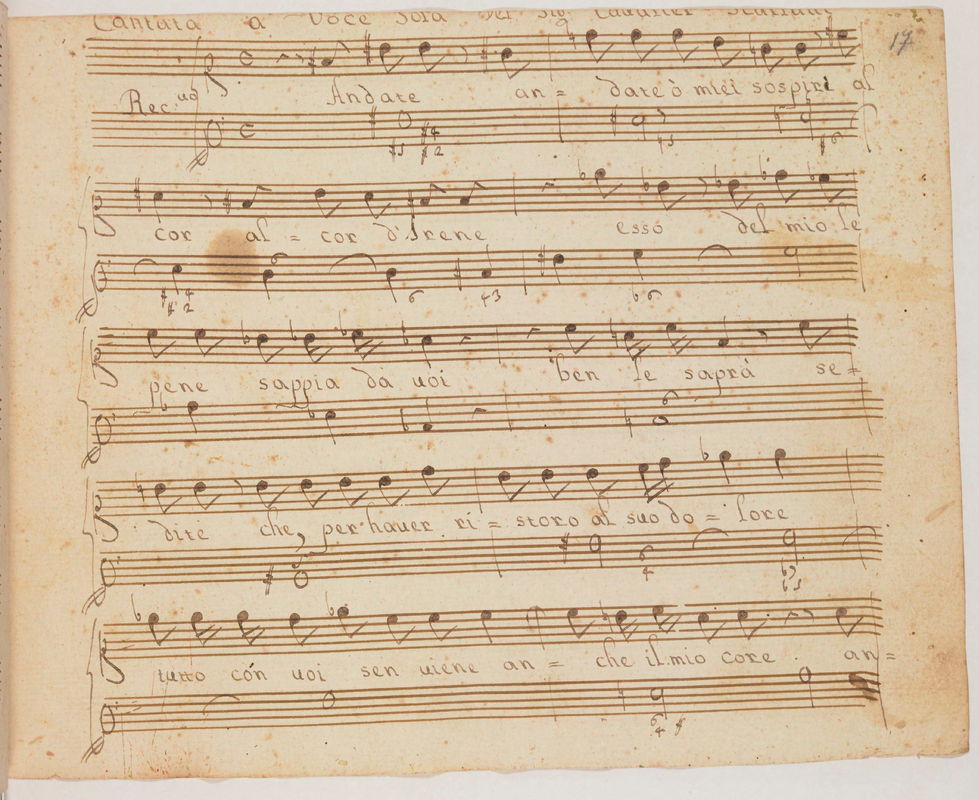 Cantata a Voce Sola Del Sig. Cavalier Scarlatti
17
Rec.uo Andate an = date ò miei sospiri al
cor al = cor d'Irene esso del mio le
pene sappia da uoi ben le saprà se =
dite che per hauer ri = storo al suo do = lore
tutto cón uoi sen uiene an = che il mio core . an =